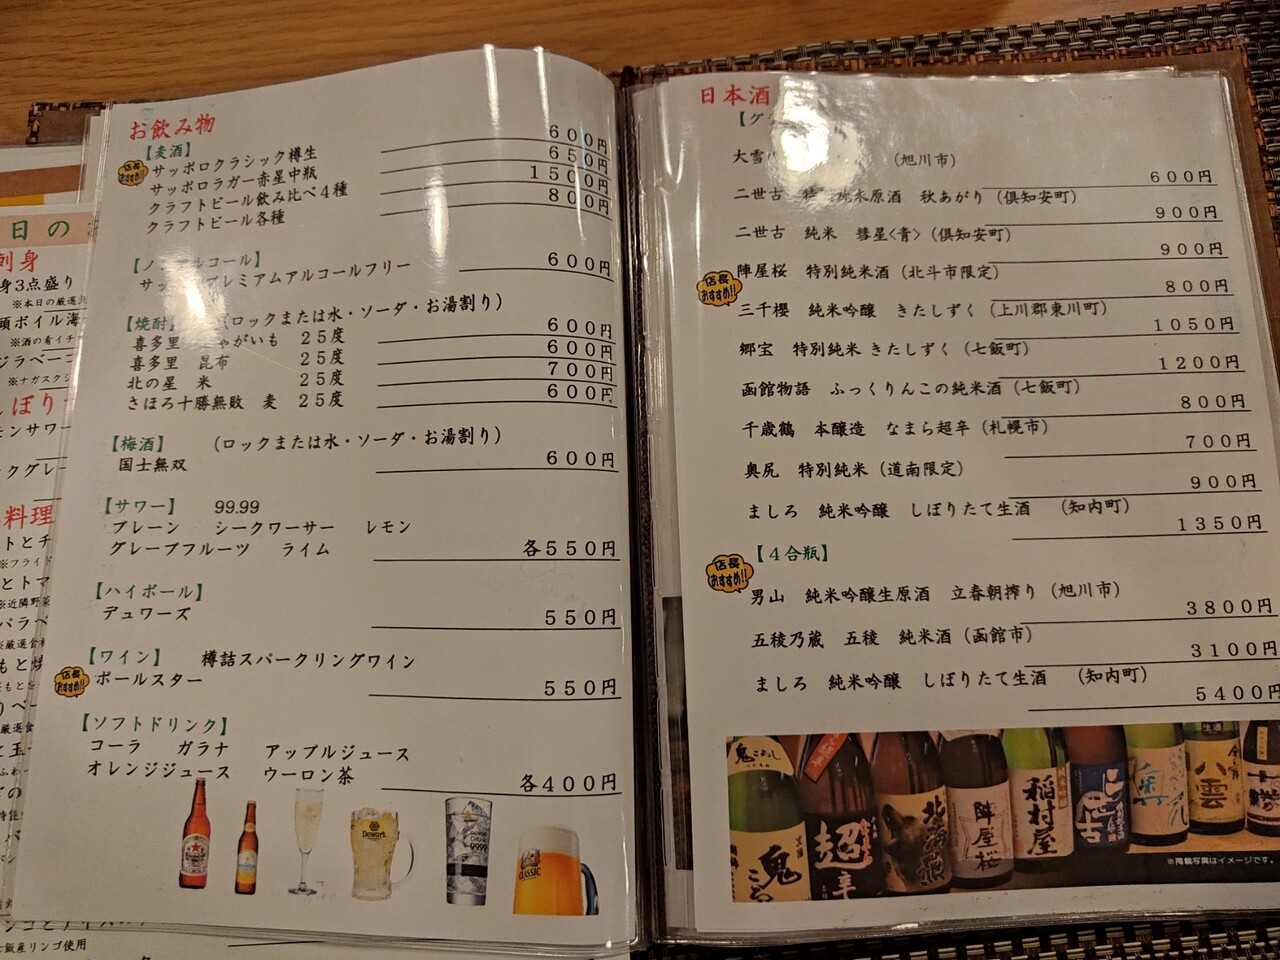 お飲み物
【麦酒】
サッポロクラシック樽生 600円
サッポロラガー赤星中瓶 650円
クラフトビール飲み比べ4種 1500円
クラフトビール各種 800円
店長おすすめ!!
【ノンアルコール】
サッ プレミアムアルコールフリー 600円
【焼酎】 (ロックまたは水・ソーダ・お湯割り)
喜多里 じゃがいも 25度 600円
喜多里 昆布 25度 600円
北の星 米 25度 700円
さほろ十勝無敗 麦 25度 600円
【梅酒】 (ロックまたは水・ソーダ・お湯割り)
国士無双 600円
【サワー】 99.99
プレーン シークワーサー レモン
グレープフルーツ ライム 各550円
【ハイボール】
デュワーズ 550円
【ワイン】 樽詰スパークリングワイン
店長おすすめ!!
ポールスター 550円
【ソフトドリンク】
コーラ ガラナ アップルジュース
オレンジジュース ウーロン茶 各400円
Dewar's
99.99
CLASSIC
日本酒
【グラ
大雪 (旭川市) 600円
二世古 特 純米原酒 秋あがり (倶知安町) 900円
二世古 純米 彗星<青> (倶知安町) 900円
店長おすすめ!!
陣屋桜 特別純米酒 (北斗市限定) 800円
三千櫻 純米吟醸 きたしずく (上川郡東川町) 1050円
郷宝 特別純米 きたしずく (七飯町) 1200円
函館物語 ふっくりんこの純米酒 (七飯町) 800円
千歳鶴 本醸造 なまら超辛 (札幌市) 700円
奥尻 特別純米 (道南限定) 900円
ましろ 純米吟醸 しぼりたて生酒 (知内町) 1350円
【4合瓶】
店長おすすめ!!
男山 純米吟醸生原酒 立春朝搾り (旭川市) 3800円
五稜乃蔵 五稜 純米酒 (函館市) 3100円
ましろ 純米吟醸 しぼりたて生酒 (知内町) 5400円
鬼ころし
鬼ころ
超辛
北海熊
陣屋桜
稲村屋
二世古
八雲
※掲載写真はイメージです。
日の
刺身
身3点盛り
※本日の厳選
頭ボイル海
ジラベーコ
※ナガスク
しぼり
モンサワー
ックグレー
料理
トとチ
※フライド
とトマ
※近隣野菜
バラベ
※厳選食
もと焼
厳選食
と玉
飯産リンゴ使用